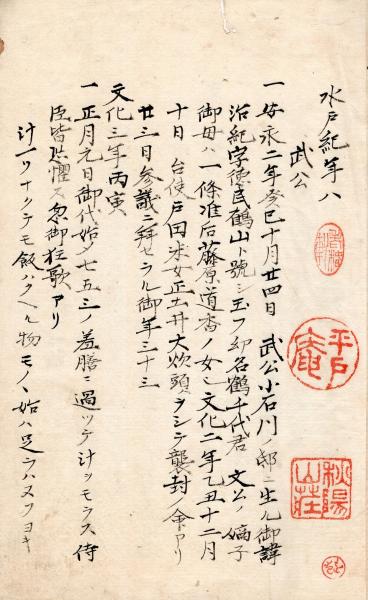 水戸紀年八
武公
一 安永二年癸巳十月廿四日 武公小石川ノ邸ニ生ル御諱
治紀字徳民鶴山ト號シ玉フ幼名鶴千代君 文公ノ嫡子
御母ハ一條准后藤原道香ノ女也文化二年乙丑十二月
十日 台使戸田采女正土井大炊頭ヲシテ襲封ノ命アリ
廿三日参議ニ拜セラル御年三十三
文化三年丙寅
一 正月元日御代始メ七五三ノ羞膳ニ過ツテ汁ヲモラス侍
臣皆恐懼ス忽御狂歌アリ
汁一ツナクテモ飯ハクヘル物モノヽ始ハ足ラハヌカヨキ
平戸庵
秋陽山荘